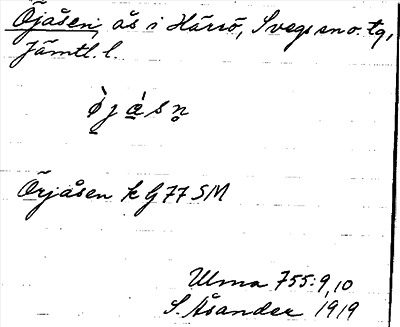 Öjåsen, ås i Härrö, Svegs sn o. tg,
Jämtl. l.
ö̀ j å̀ s n̥
Örjåsen k G 77 SM
Ulma 755:9,10
S. Åsander 1919